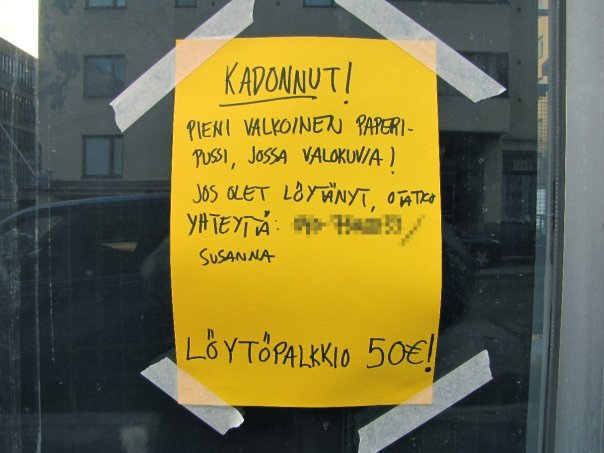 KADONNUT!
PIENI VALKOINEN PAPERI-
PUSSI, JOSSA VALOKUVIA!
JOS OLET LÖYTÄNYT, OTATKO
YHTEYTTÄ:
SUSANNA
LÖYTÖPALKKIO 50€!